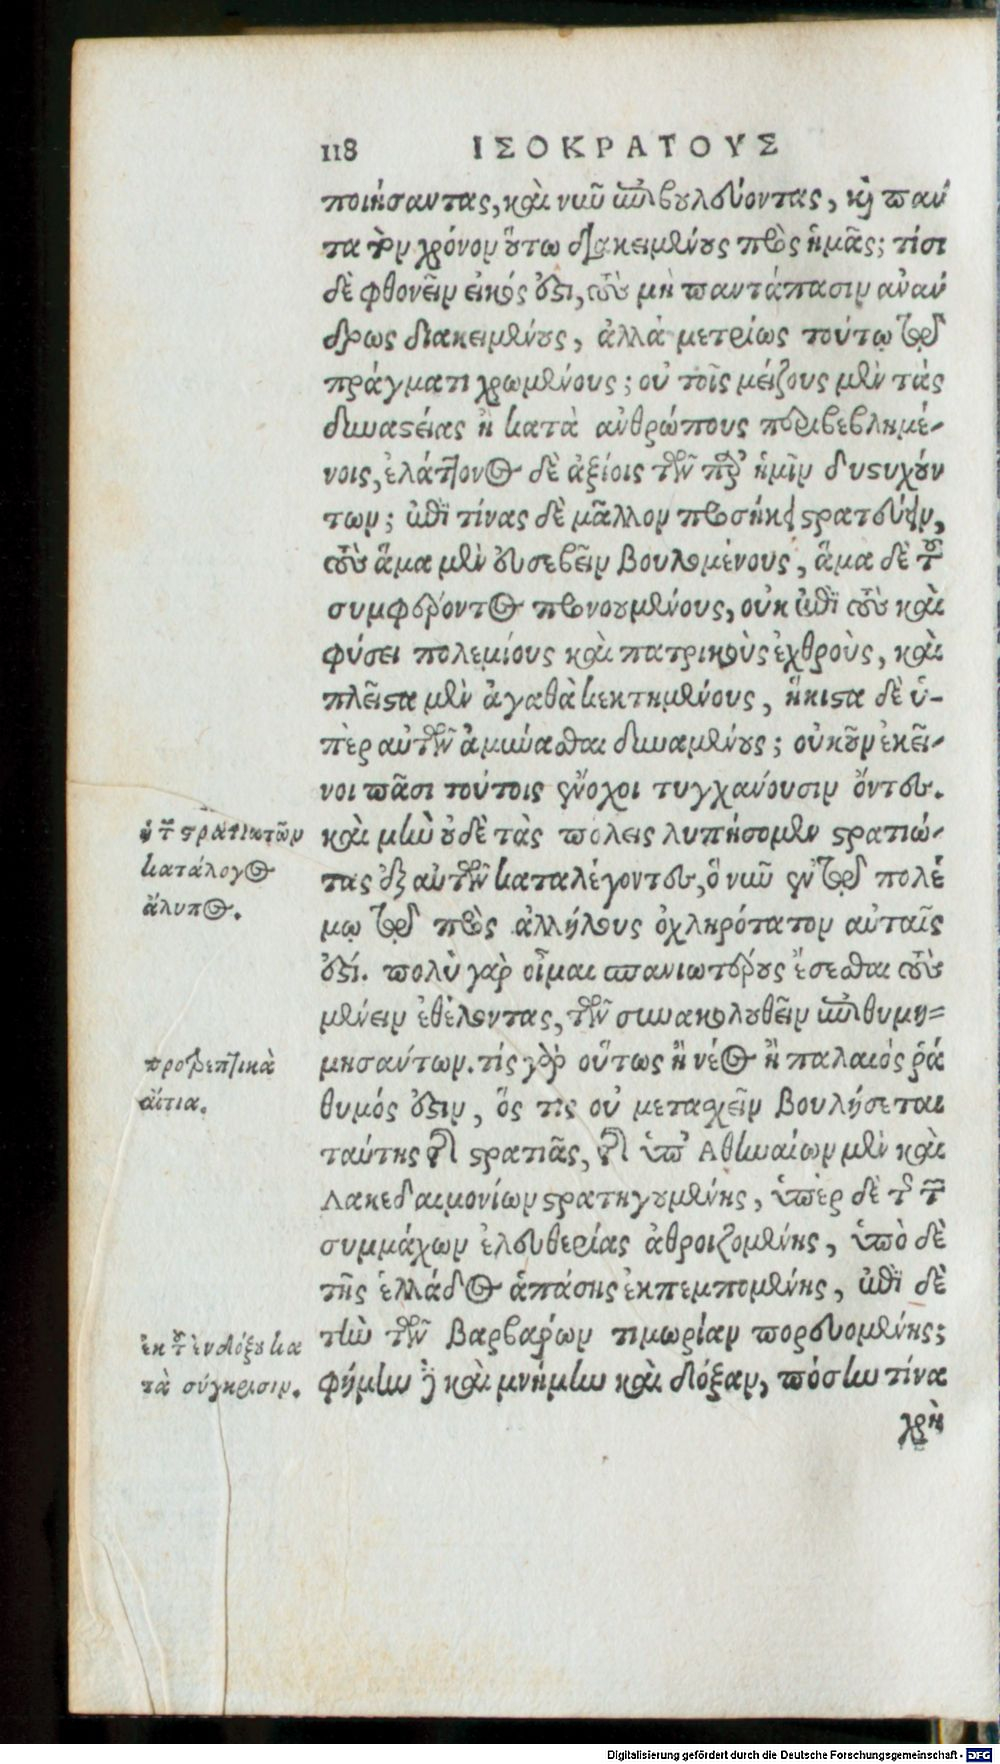 118 ΙΣΟΚΡΑΤΟΥΣ
ποιήσαντας, καὶ νῦν ἐπιβουλεύοντας, καὶ πάν
τα τὸν χρόνον οὕτω διακειμένους πρὸς ἡμᾶς; τίσι
δὲ φθονεῖν εἰκός ἐστι, τοὺς μὴ παντάπασιν ἀνάν
δρως διακειμένους, ἀλλὰ μετρίως τούτῳ τῷ
πράγματι χρωμένους; οὐ τοῖς μείζους μὲν τὰς
δυναστείας ἢ κατὰ ἀνθρώπους περιβεβλημέ-
νοις, ἐλάττονος δὲ ἀξίοις τῶν παρ' ἡμῖν δυστυχούν
των; ἐπὶ τίνας δὲ μᾶλλον προσήκει στρατεύειν,
τοὺς ἅμα μὲν εὐσεβεῖν βουλομένους, ἅμα δὲ τοῦ
συμφέροντος προνουμένους, οὐκ ἐπὶ τοὺς καὶ
φύσει πολεμίους καὶ πατρικοὺς ἐχθροὺς, καὶ
πλεῖστα μὲν ἀγαθὰ κεκτημένους, ἥκιστα δὲ ὑ-
πὲρ αὐτῶν ἀμύνασθαι δυναμένους; οὐκοῦν ἐκεῖ-
νοι πᾶσι τούτοις ἔνοχοι τυγχάνουσιν ὄντες.
καὶ μὴν οὐδὲ τὰς πόλεις λυπήσομεν στρατιώ-
τας ἐξ αὐτῶν καταλέγοντες, ὃ νῦν ἐν τῷ πολέ
μῳ τῷ πρὸς ἀλλήλους ὀχληρότατον αὐταῖς
ἐστί. πολὺ γὰρ οἶμαι σπανιωτέρους ἔσεσθαι τοὺς
μένειν ἐθέλοντας, τῶν συνακολουθεῖν ἐπιθυμη=
μησάντων. τίς γὰρ οὕτως ἢ νέος ἢ παλαιός ῥά
θυμός ἐστιν, ὅς τις οὐ μετασχεῖν βουλήσεται
ταύτης τῆς στρατιᾶς, τῆς ὑπ' Ἀθηναίων μὲν καὶ
Λακεδαιμονίων στρατηγουμένης, ὑπὲρ δὲ τῆς τῶν
συμμάχων ἐλευθερίας ἀθροιζομένης, ὑπὸ δὲ
τῆς ἑλλάδος ἁπάσης ἐκπεμπομένης, ἐπὶ δὲ
τὴν τῶν βαρβάρων τιμωρίαν πορευομένης;
φήμην δὲ καὶ μνήμην καὶ δόξαν, πόσην τίνα
χρὴ
ὁ τῶν στρατιωτῶν
κατάλογος
ἄλυπος.
προτρεπτικὰ
αἴτια.
ἐκ τοῦ ἐνδόξου κα
τὰ σύγκρισιν.
Digitalisierung gefördert durch die Deutsche Forschungsgemeinschaft - DFG